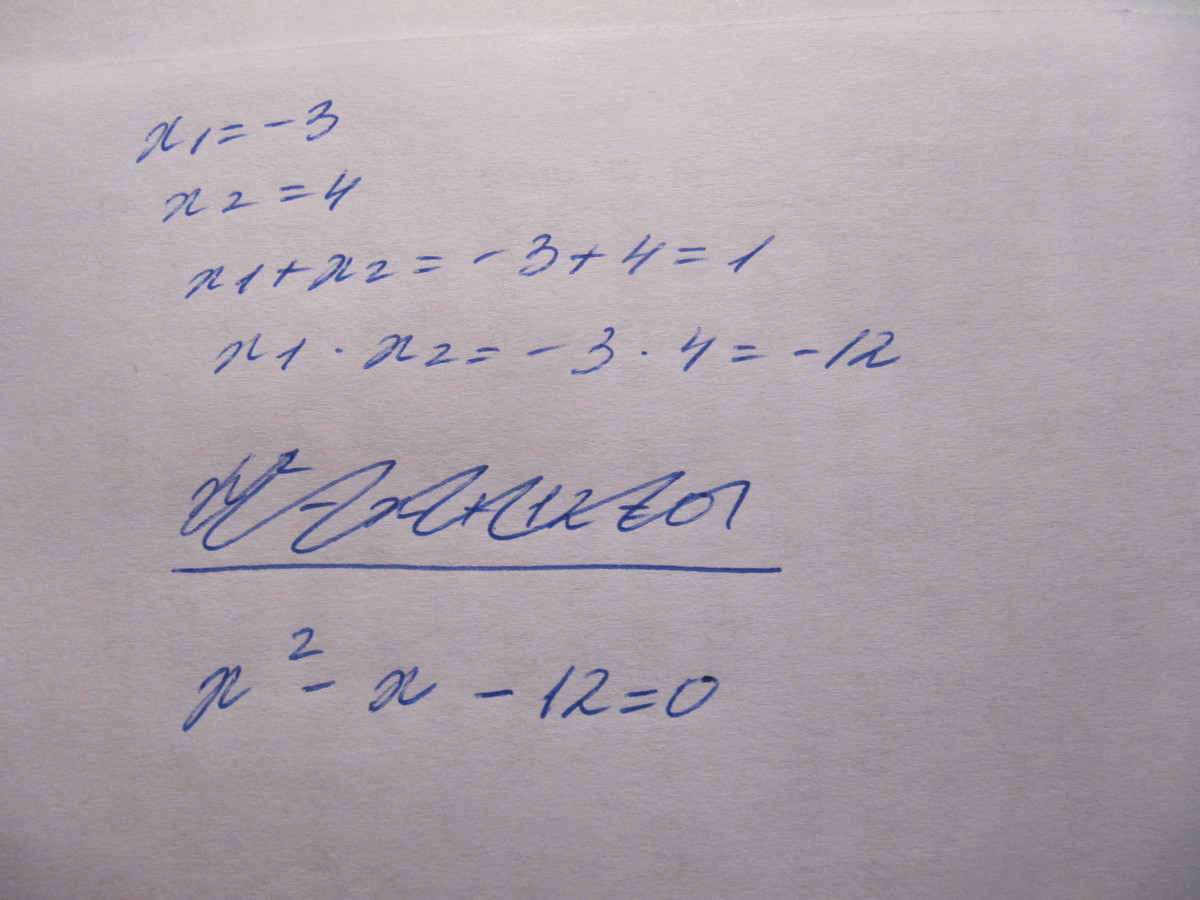 x1=-3
x2=4
x1+x2=-3+4=1
x1·x2=-3·4=-12
x²-x-12=0